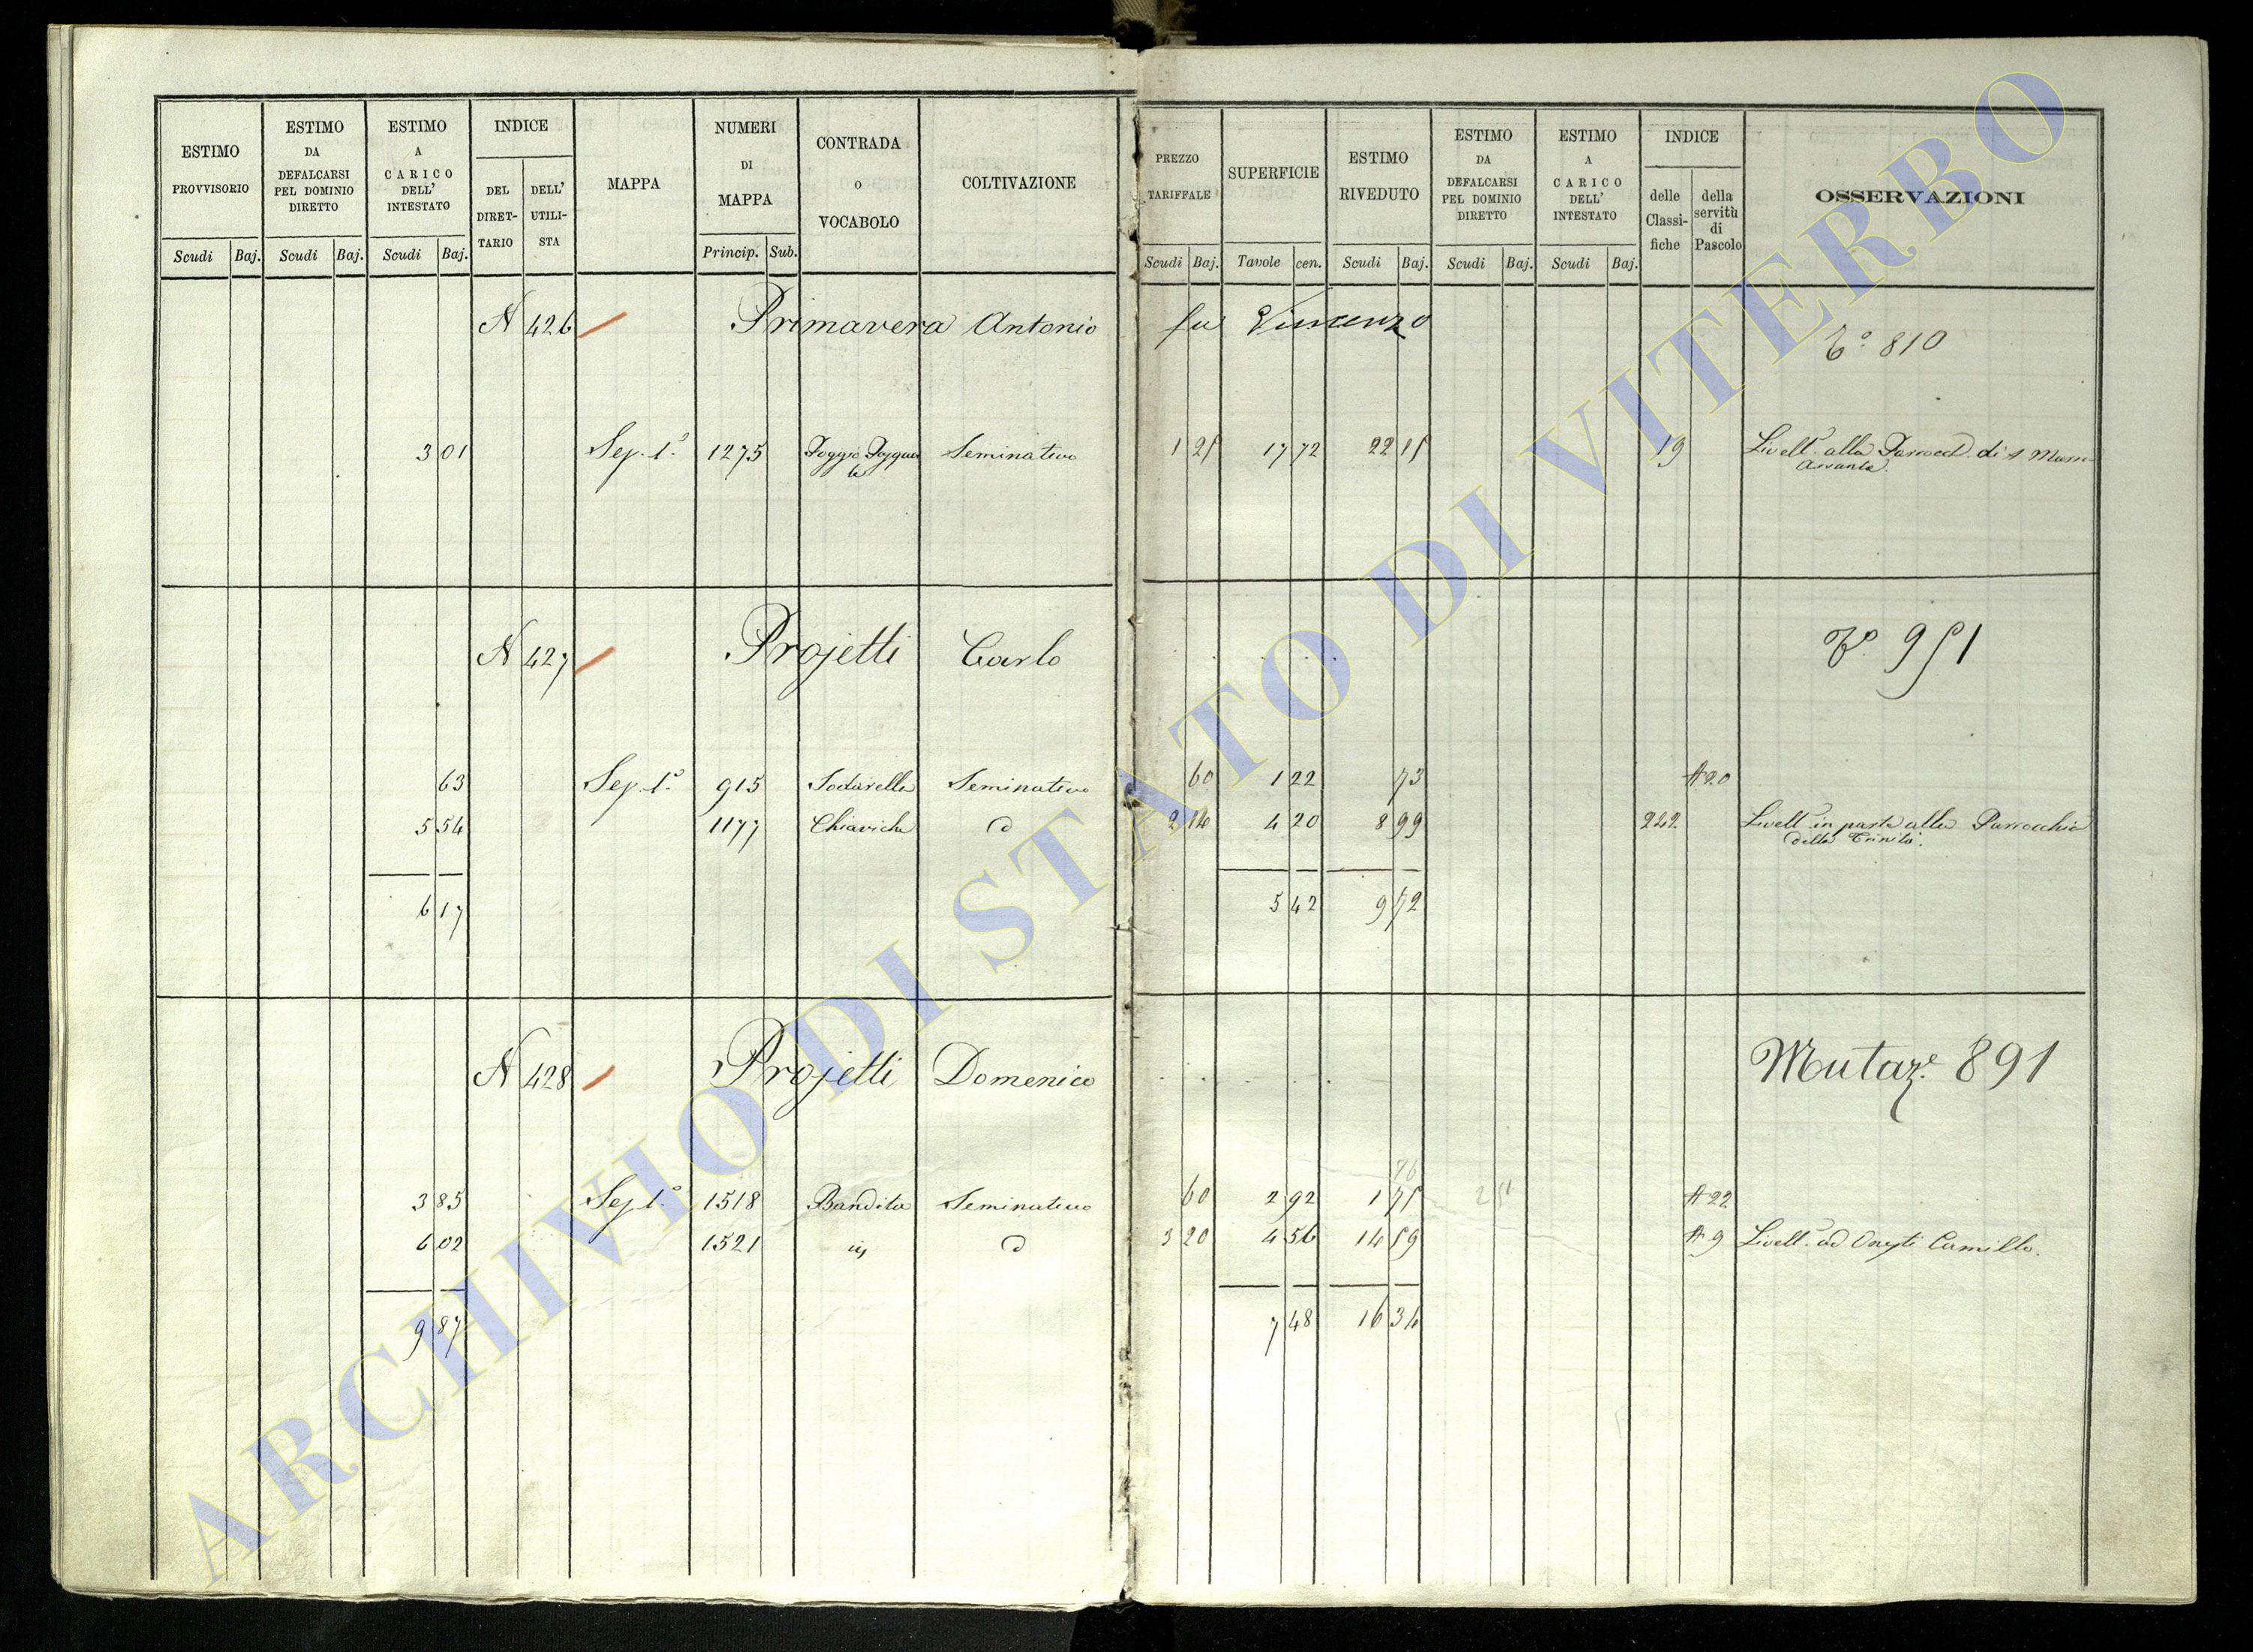 ESTIMO PROVVISORIO
Scudi Baj.
ESTIMO DA DEFALCARSI PEL DOMINIO DIRETTO
Scudi Baj.
ESTIMO A CARICO DELL' INTESTATO
Scudi Baj.
INDICE
DEL DIRET-TARIO
DELL' UTILI-STA
MAPPA
NUMERI DI MAPPA
Princip. Sub.
CONTRADA O VOCABOLO
COLTIVAZIONE
PREZZO TARIFFALE
Scudi Baj.
SUPERFICIE
Tavole cen.
ESTIMO RIVEDUTO
Scudi Baj.
ESTIMO DA DEFALCARSI PEL DOMINIO DIRETTO
Scudi Baj.
ESTIMO A CARICO DELL' INTESTATO
Scudi Baj.
INDICE
delle Classi-fiche
della servitù di Pascolo
OSSERVAZIONI
N 426 Primavera Antonio fu Vincenzo
To 810
3 01 Sez. 1a 1275 Poggio Seminativo 1 25 17 72 22 15 19 Livell. alla Parroch. di S Maria
Assunta.
N 427 Projetti Carlo
To 951
63 Sez. 1a 915 Sodarella Seminativo 60 1 22 73 A 20
5 54 1177 Chiaviche d 2 14 4 20 8 99 242 Livell in parte alla Parrocchia
della Trinità.
6 17 5 42 9 72
N 428 Projetti Domenico
Mutaze 891
76
3 85 Sez 1a 1518 Bandita Seminativo 60 2 92 1 75 2 51 A 22
6 02 1521 d 3 20 4 56 14 59 A 9 Livell. ad Camillo.
9 87 7 48 16 34
ARCHIVIO DI STATO DI VITERBO